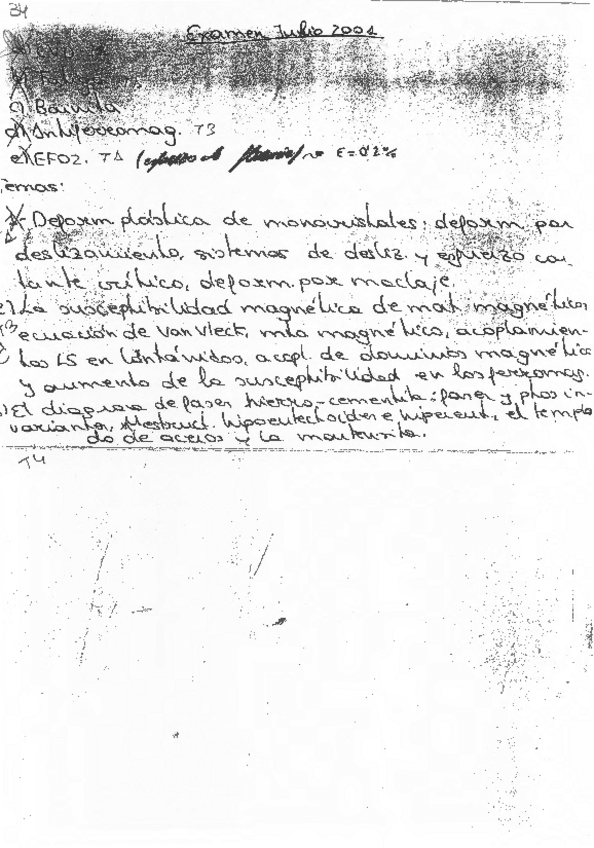 34
Examen Julio 2001
c) Bainita
d) Antiferromag. T3
e) EFO2. T1 ε=0'2%
Temas:
Deform plástica de monocristales: deform por
deslizamiento, sistemas de desliz. y esfuerzo cor
tante crítico, deform. por maclaje
2) La susceptibilidad magnética de mat. magnéticos
T3 ecuación de Van Vleck, mto magnético, acoplamien-
tos LS en lantánidos, acopl. de dominios magnético
y aumento de la susceptibilidad en los ferromag.
El diagrama de fases hierro-cementita: fases y ptos in-
variantes, Mestruct. hipoeutectoides e hipereut, el templa
do de aceros y la martensita.
T4